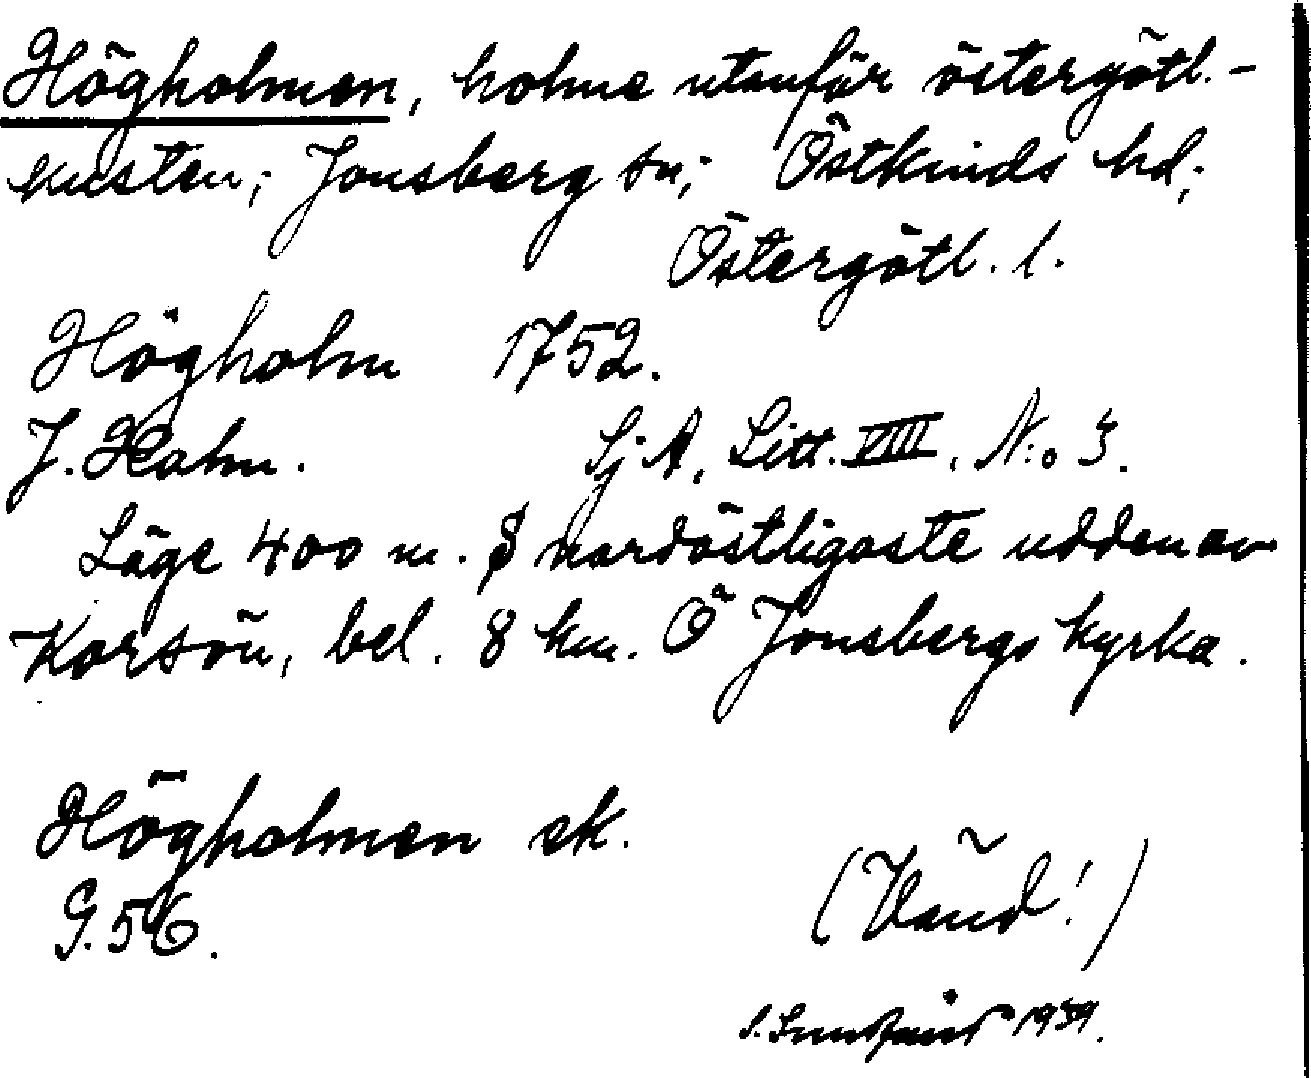 Högholmen, holme utanför östergötl.-
kusten; Jonsberg sn; Östkinds hd;
Östergötl. l.
Högholm 1752.
J. Hahn. Sj A, Litt. VIII, N:o 3.
Läge 400 m. S nordöstligaste udden av
Korsön, bel. 8 km. Ö Jonsbergs kyrka.
Högholmen ek.
G. 56.
(Vänd!)
1939.